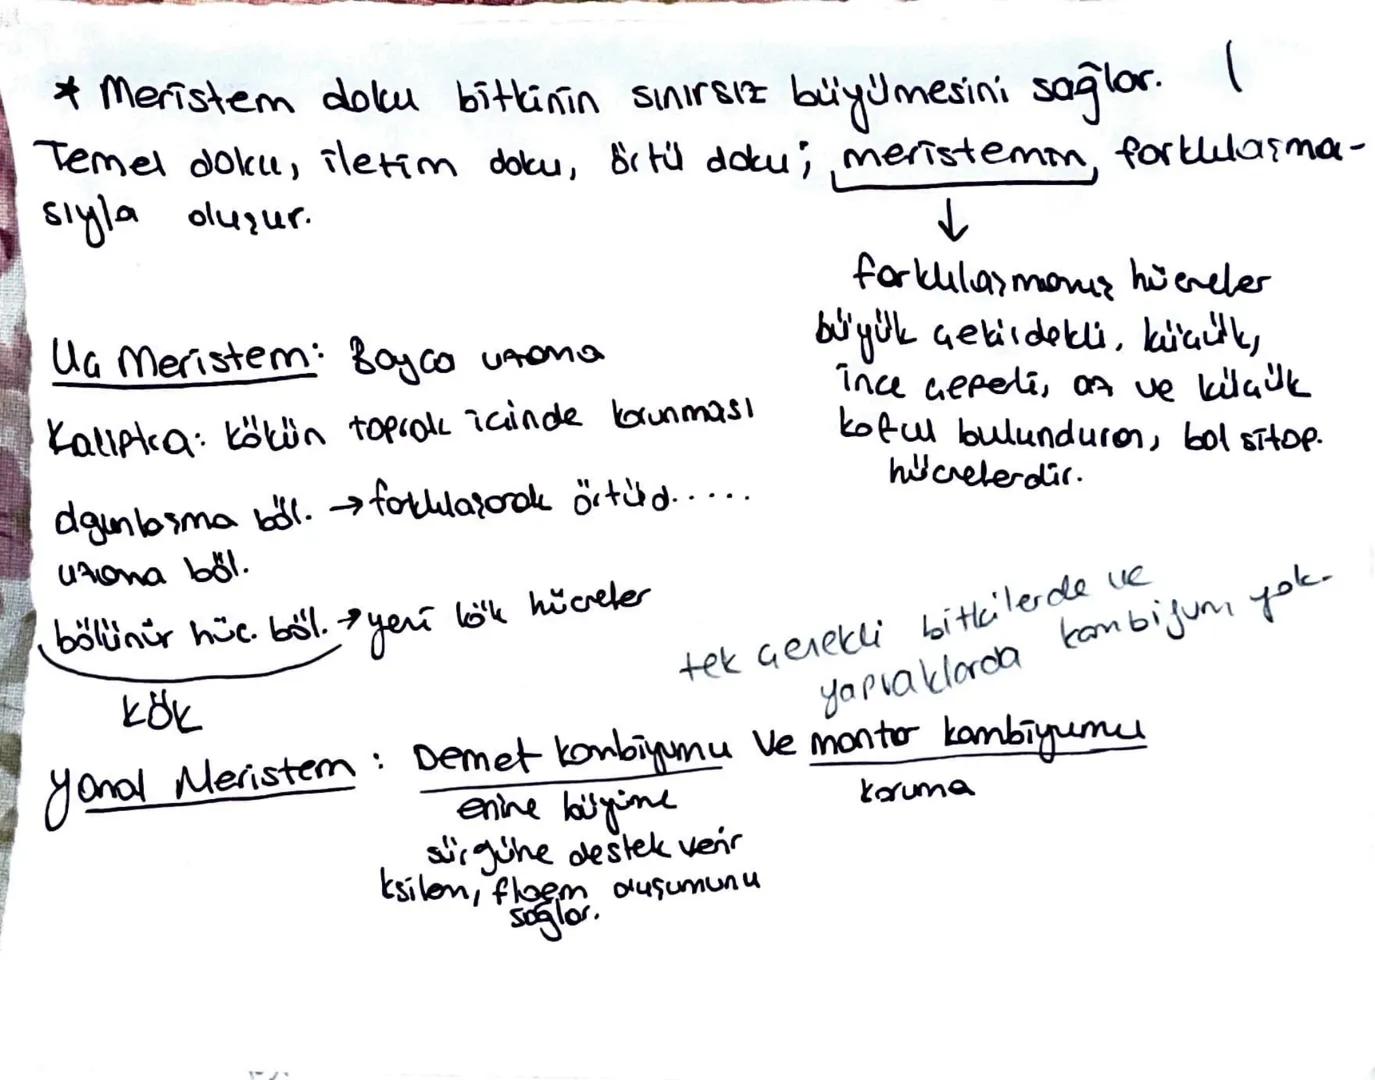 * Meristem doku bitkinin sınırsız büyümesini sağlar.
Temel doku, iletim doku, örtü doku; meristemin, farklılaşma-
sıyla oluşur.
↓
farklılaşmamış hücreler
büyük çekirdekli, küçük,
ince çeperli, az ve küçük
koful bulunduran, bol sitop.
hücrelerdir.
Uç Meristem: Boyca uzama
Kaliptra: kökün toprak içinde korunması
olgunlaşma böl. → farklılaşarak örtü d.....
uzama böl.
bölünür hüc. böl. → yeni kök hücreler
kök
tek çenekli bitkilerde ve
yapraklarda kambiyum yok.
Yanal Meristem: Demet kambiyumu ve mantar kambiyumu
enine büyüme
koruma
sürgüne destek verir
ksilem, floem oluşumunu
sağlar.